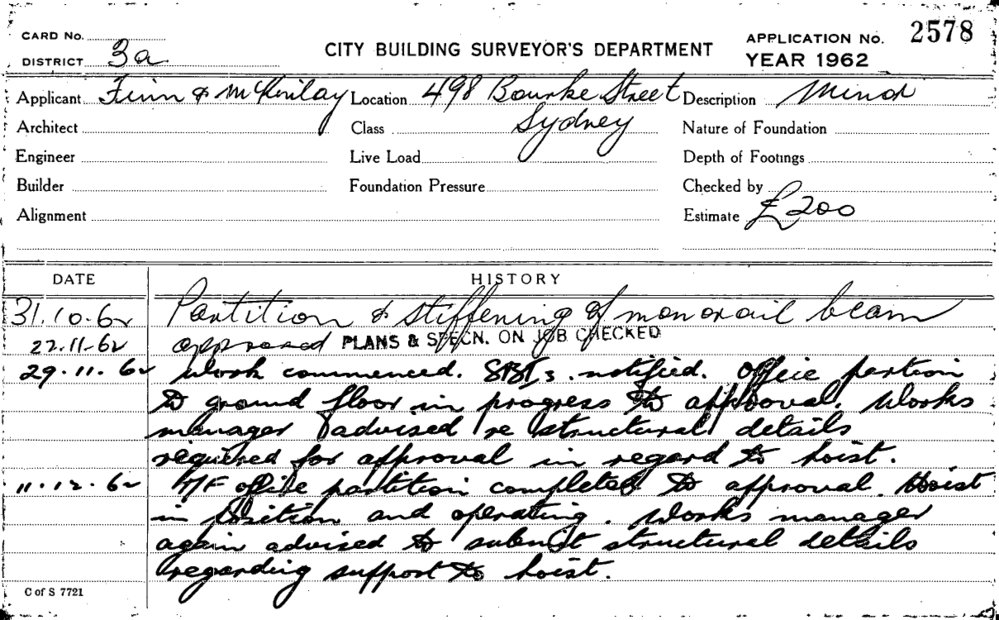 CARD No.
DISTRICT 3a
CITY BUILDING SURVEYOR'S DEPARTMENT
APPLICATION No. 2578
YEAR 1962
Applicant Finn & McKinlay Location 498 Bourke Street Description Minor
Architect Class Sydney Nature of Foundation
Engineer Live Load Depth of Footings
Builder Foundation Pressure Checked by
Alignment Estimate £200
DATE HISTORY
31.10.62 Partition & stiffening of monorail beam
22.11.62 approved PLANS & SPECN. ON JOB CHECKED
29.11.62 Work commenced. SBIs. notified. Office partion
to ground floor in progress to approval. Works
manager advised re structural details
required for approval in regard to hoist.
11.12.62 G/F office partition completed to approval. Hoist
in position and operating. Works manager
again advised to submit structural details
regarding support to hoist.
C of S 7721